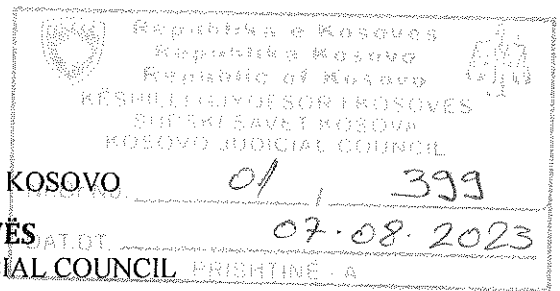 Republika e Kosovës
Republika Kosova
Republic of Kosovo
KËSHILLI GJYQËSOR I KOSOVËS
SUDSKI SAVET KOSOVA
KOSOVO JUDICIAL COUNCIL
KOSOVO NR. 01 / 399
ËS DAT.DT. 07.08.2023
IAL COUNCIL PRISHTINË - A